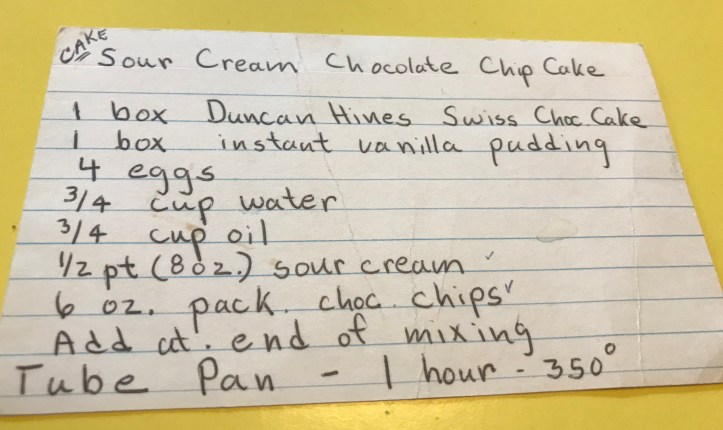 CAKE
Sour Cream Chocolate Chip Cake
1 box Duncan Hines Swiss Choc. Cake
1 box instant vanilla pudding
4 eggs
3/4 cup water
3/4 cup oil
1/2 pt (8 oz.) sour cream ✓
6 oz. pack. choc. chips ✓
Add at. end of mixing
Tube Pan - 1 hour - 350°